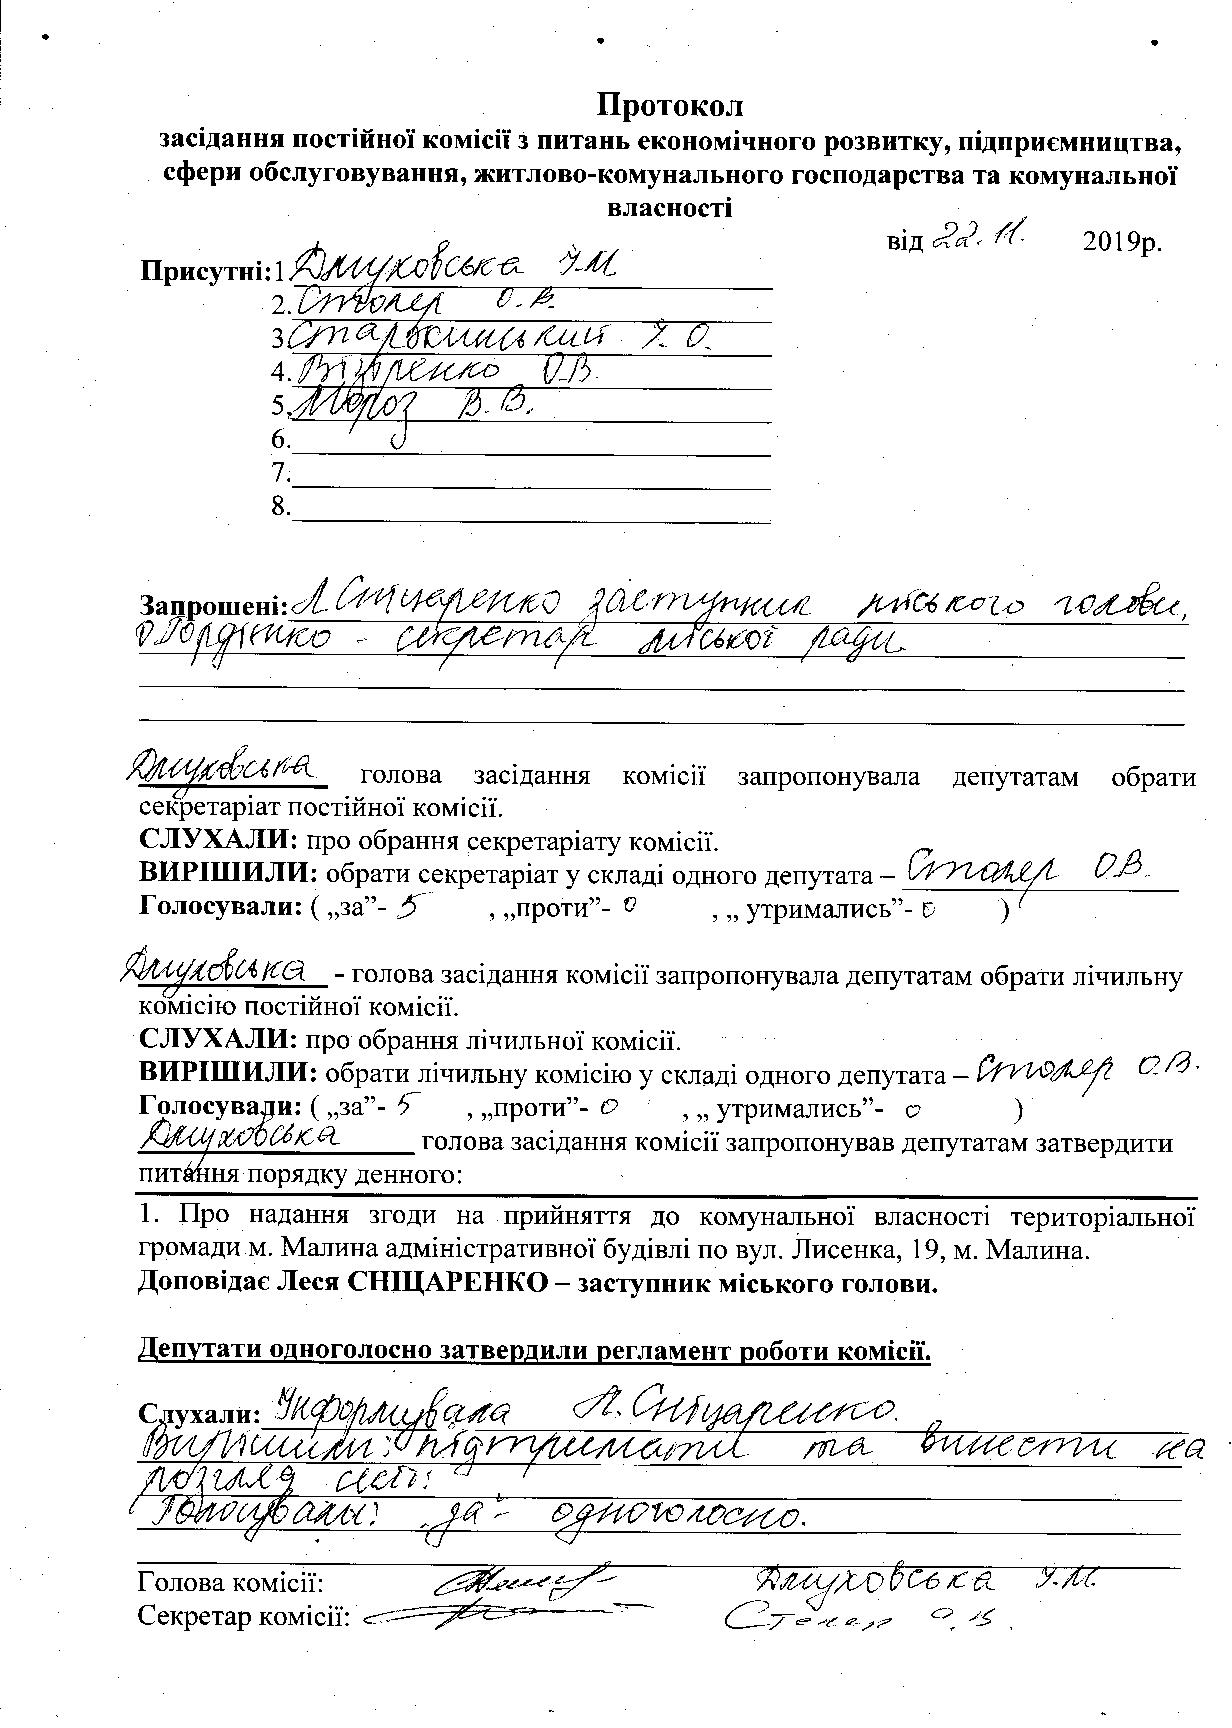 Протокол
засідання постійної комісії з питань економічного розвитку, підприємництва,
сфери обслуговування, житлово-комунального господарства та комунальної
власності
від 22.11. 2019р.
Присутні:1 Дмуховська І.М
2. Столер О.В.
3 Старжинський І.О.
4. Вітренко О.В.
5. Мороз В.В.
6.
7.
8.
Запрошені: Л Сніцаренко заступник міського голови,
О Гордієнко - секретар міської ради.
Дмуховська голова засідання комісії запропонувала депутатам обрати
секретаріат постійної комісії.
СЛУХАЛИ: про обрання секретаріату комісії.
ВИРІШИЛИ: обрати секретаріат у складі одного депутата – Столер О.В.
Голосували: ( „за”- 5 , „проти”- 0 , „ утримались”- 0 )
Дмуховська - голова засідання комісії запропонувала депутатам обрати лічильну
комісію постійної комісії.
СЛУХАЛИ: про обрання лічильної комісії.
ВИРІШИЛИ: обрати лічильну комісію у складі одного депутата – Столер О.В.
Голосували: ( „за”- 5 , „проти”- 0 , „ утримались”- 0 )
Дмуховська голова засідання комісії запропонував депутатам затвердити
питання порядку денного:
1. Про надання згоди на прийняття до комунальної власності територіальної
громади м. Малина адміністративної будівлі по вул. Лисенка, 19, м. Малина.
Доповідає Леся СНІЦАРЕНКО – заступник міського голови.
Депутати одноголосно затвердили регламент роботи комісії.
Слухали: Інформувала Л. Сніцаренко.
Вирішили: підтримати та винести на
розгляд сесії.
Голосували: „за" - одноголосно.
Голова комісії: Дмуховська І.М.
Секретар комісії: Столер О.В.